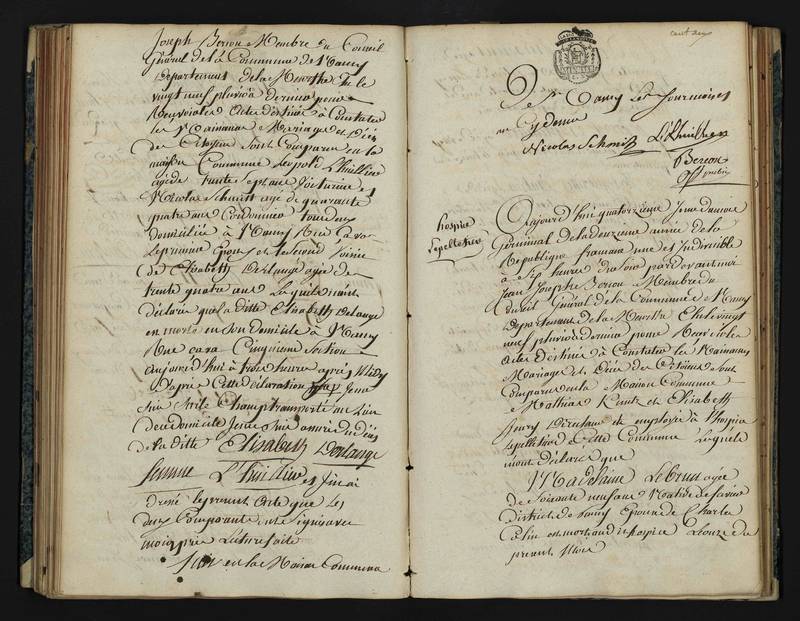 Joseph Berion Membre du Conseil
Général de la Commune de Nancy
Departement de la Meurthe élu le
vingt neuf pluviose dernier pour
Recevoir les Actes destinés à Constater
les Naissances Mariages et Décès
des Citoyens sont Comparus en la
maison Commune Leopold L'huillier
agé de trente sept ans voiturier et
Nicolas Schmitt agé de quarante
quatre ans Cordonnier tous deux
domiciliés à Nancy Rue
le premier Epoux et le Second Voisin
de Elisabeth Derlange agée de
trente quatre ans Lesquels m'ont
déclaré que la ditte Elisabeth Derlange
en morte en son domicile à Nancy
Rue Cinquieme Section
aujourd'hui à trois heures après Midy
d'après Cette déclaration je me
suis Sur le Champ transporté au Lieu
de ce domicile je me suis assuré du décès
de la ditte Elisabeth Derlange
femme L'huillier et j'en ai
dressé le present Acte que les
deux Comparants ont Signé avec
moi après Lecture faite
fait en la Maison Commune
cent
De Nancy Les Jour mois et
an Cy dessus
Nicolas Schmitt L. L'huillier
Berion
Off public
hospice
Sepelletrier
Aujourd'hui quatorzieme Jour du mois
Germinal de la deuxieme année de la
Republique francaise une et Indivisible
à Six heures du soir pardevant moi
Jean Joseph Berion Membre du
Conseil Général de la Commune de Nancy
Departement de la Meurthe Elu le vingt
neuf pluviose dernier pour Recevoir les
Actes destinés à Constater les Naissances
Mariages et Décès des Citoiens sont
Comparus en la Maison Commune
Mathias Kantz et Elisabeth
employé à l'hospice
Sepelletrier de Cette Commune Lesquels
mont déclaré que
Madelaine Lebrun agée
de Soixante neuf ans Native de
district de Nancy Epouse de Charles
Colin est morte au dit hospice Le onze du
present Mois